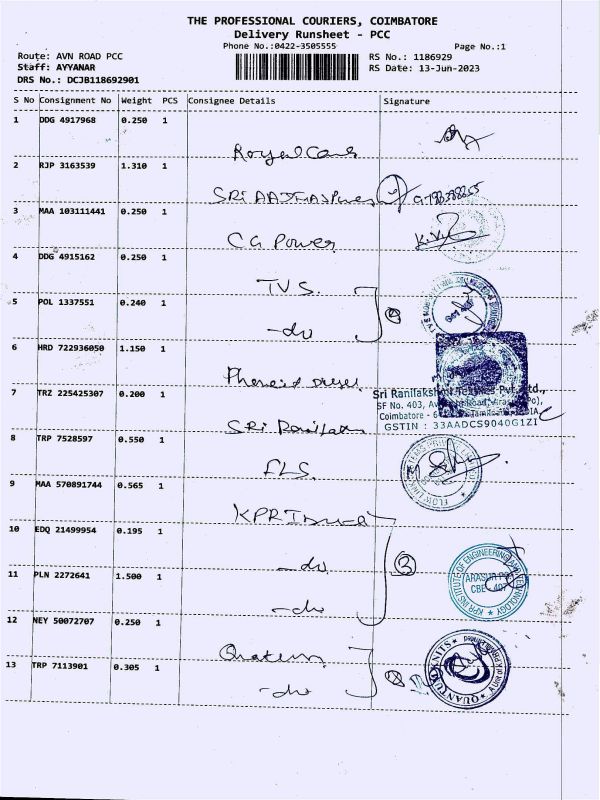 THE PROFESSIONAL COURIERS, COIMBATORE
Delivery Runsheet - PCC
Phone No.:0422-3505555 Page No.:1
Route: AVN ROAD PCC RS No.: 1186929
Staff: AYYANAR RS Date: 13-Jun-2023
DRS No.: DCJB118692901
S No Consignment No Weight PCS Consignee Details Signature
1 DDG 4917968 0.250 1
Royal Care
2 RJP 3163539 1.310 1
SRi
3 MAA 103111441 0.250 1
CG Power K.V
4 DDG 4915162 0.250 1
TVS.
5 POL 1337551 0.240 1
-do 2
6 HRD 722936050 1.150 1
7 TRZ 225425307 0.200 1
Sri Ranilakshmi Textiles Pvt. Ltd.,
SF No. 403,
Coimbatore - 6
GSTIN : 33AADCS9040G1ZI
SRi
8 TRP 7528597 0.550 1
FLS.
FLOW LINK SYSTEMS PRIVATE
9 MAA 570891744 0.565 1
KPR
10 EDQ 21499954 0.195 1
-do 3
11 PLN 2272641 1.500 1
KPR INSTITUTE OF ENGINEERING AND TECHNOLOGY
ARASUR PO
CBE - 407
-do
12 NEY 50072707 0.250 1
13 TRP 7113901 0.305 1
-do 2
QUANTUM KNITS